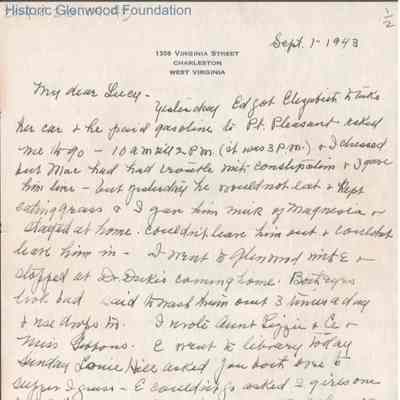 Historic Glenwood Foundation
1/2
Sept. 1 - 1943
1308 VIRGINIA STREET
CHARLESTON
WEST VIRGINIA
My dear Lucy -
Yesterday Ed got Elizabeth to take
her car & he paid gasoline to Pt. Pleasant - asked
me to go - 10 am till 2 P.m. (it was 3 P.m.) & I dressed
but Mac had had trouble with constipation & I gave
him - but yesterday he would not eat & kept
eating grass & I gave him milk of Magnesia &
stayed at home. Couldn't leave him out & couldn't
leave him in - I went to Glenwood with E &
stopped at Dr. coming home. Both eyes
look bad said to wash them out 3 times a day
& use drops in. I wrote Aunt Lizzie & &
Miss . E went to library today
Sunday asked you both over to
supper I guess - E couldn't go asked 2 girls one